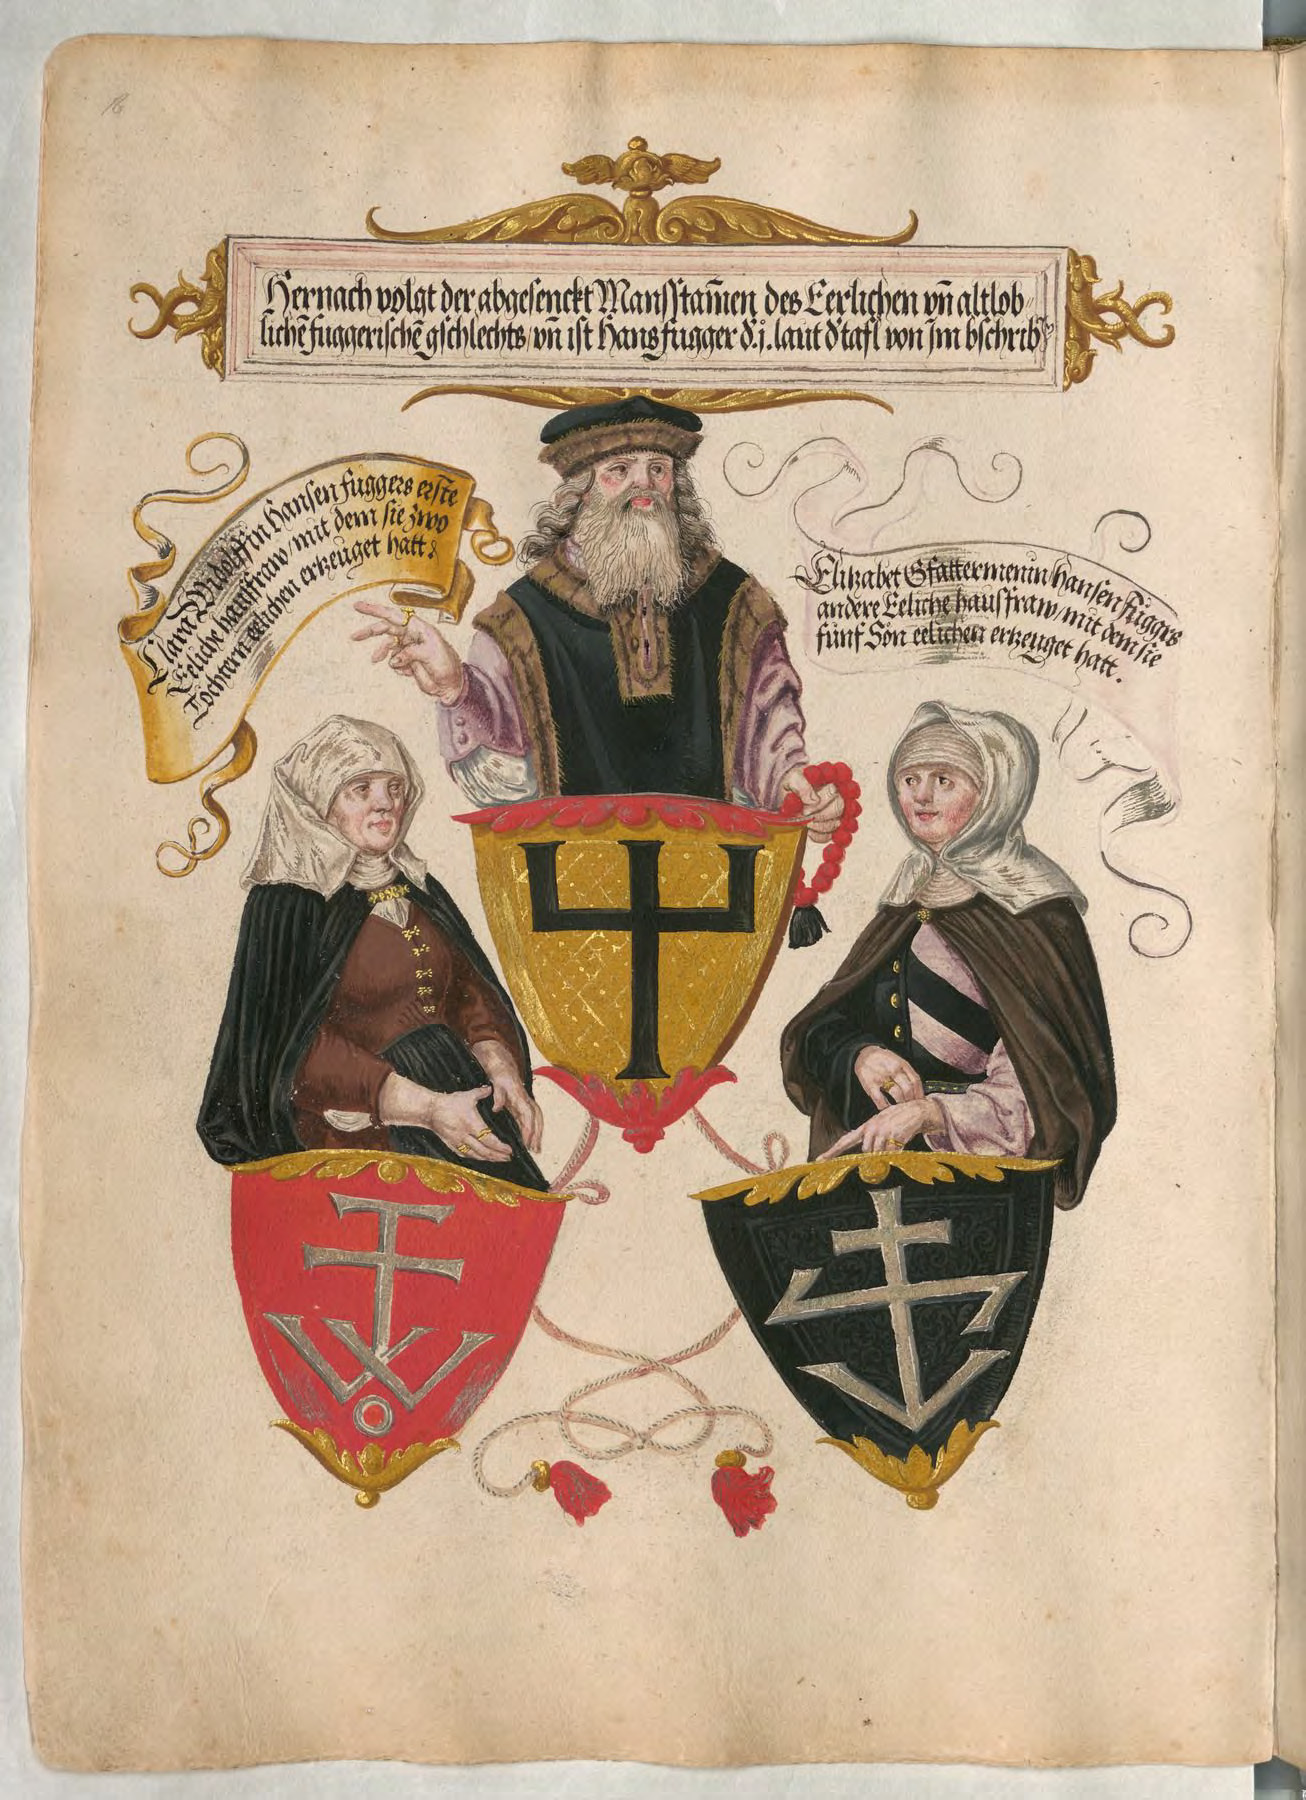 Hernach volgt der abgesenckt Manſſtam̄en des Eerlichen vn̄ altlob⸗
lichē fuggerischē gschlechts / vn̄ ist Hans fugger d. j. laut d tafl von jm bschrib
Clara Widolffin Hansen fuggers erste
Eeliche hausfraw / mit dem sie zwo
Tochtern eelichen erzeuget hatt
Elizabet Gfattermenin hansen fuggers
andere Eeliche hausfraw / mit dem sie
fünf Sön eelichen erzeuget hatt.